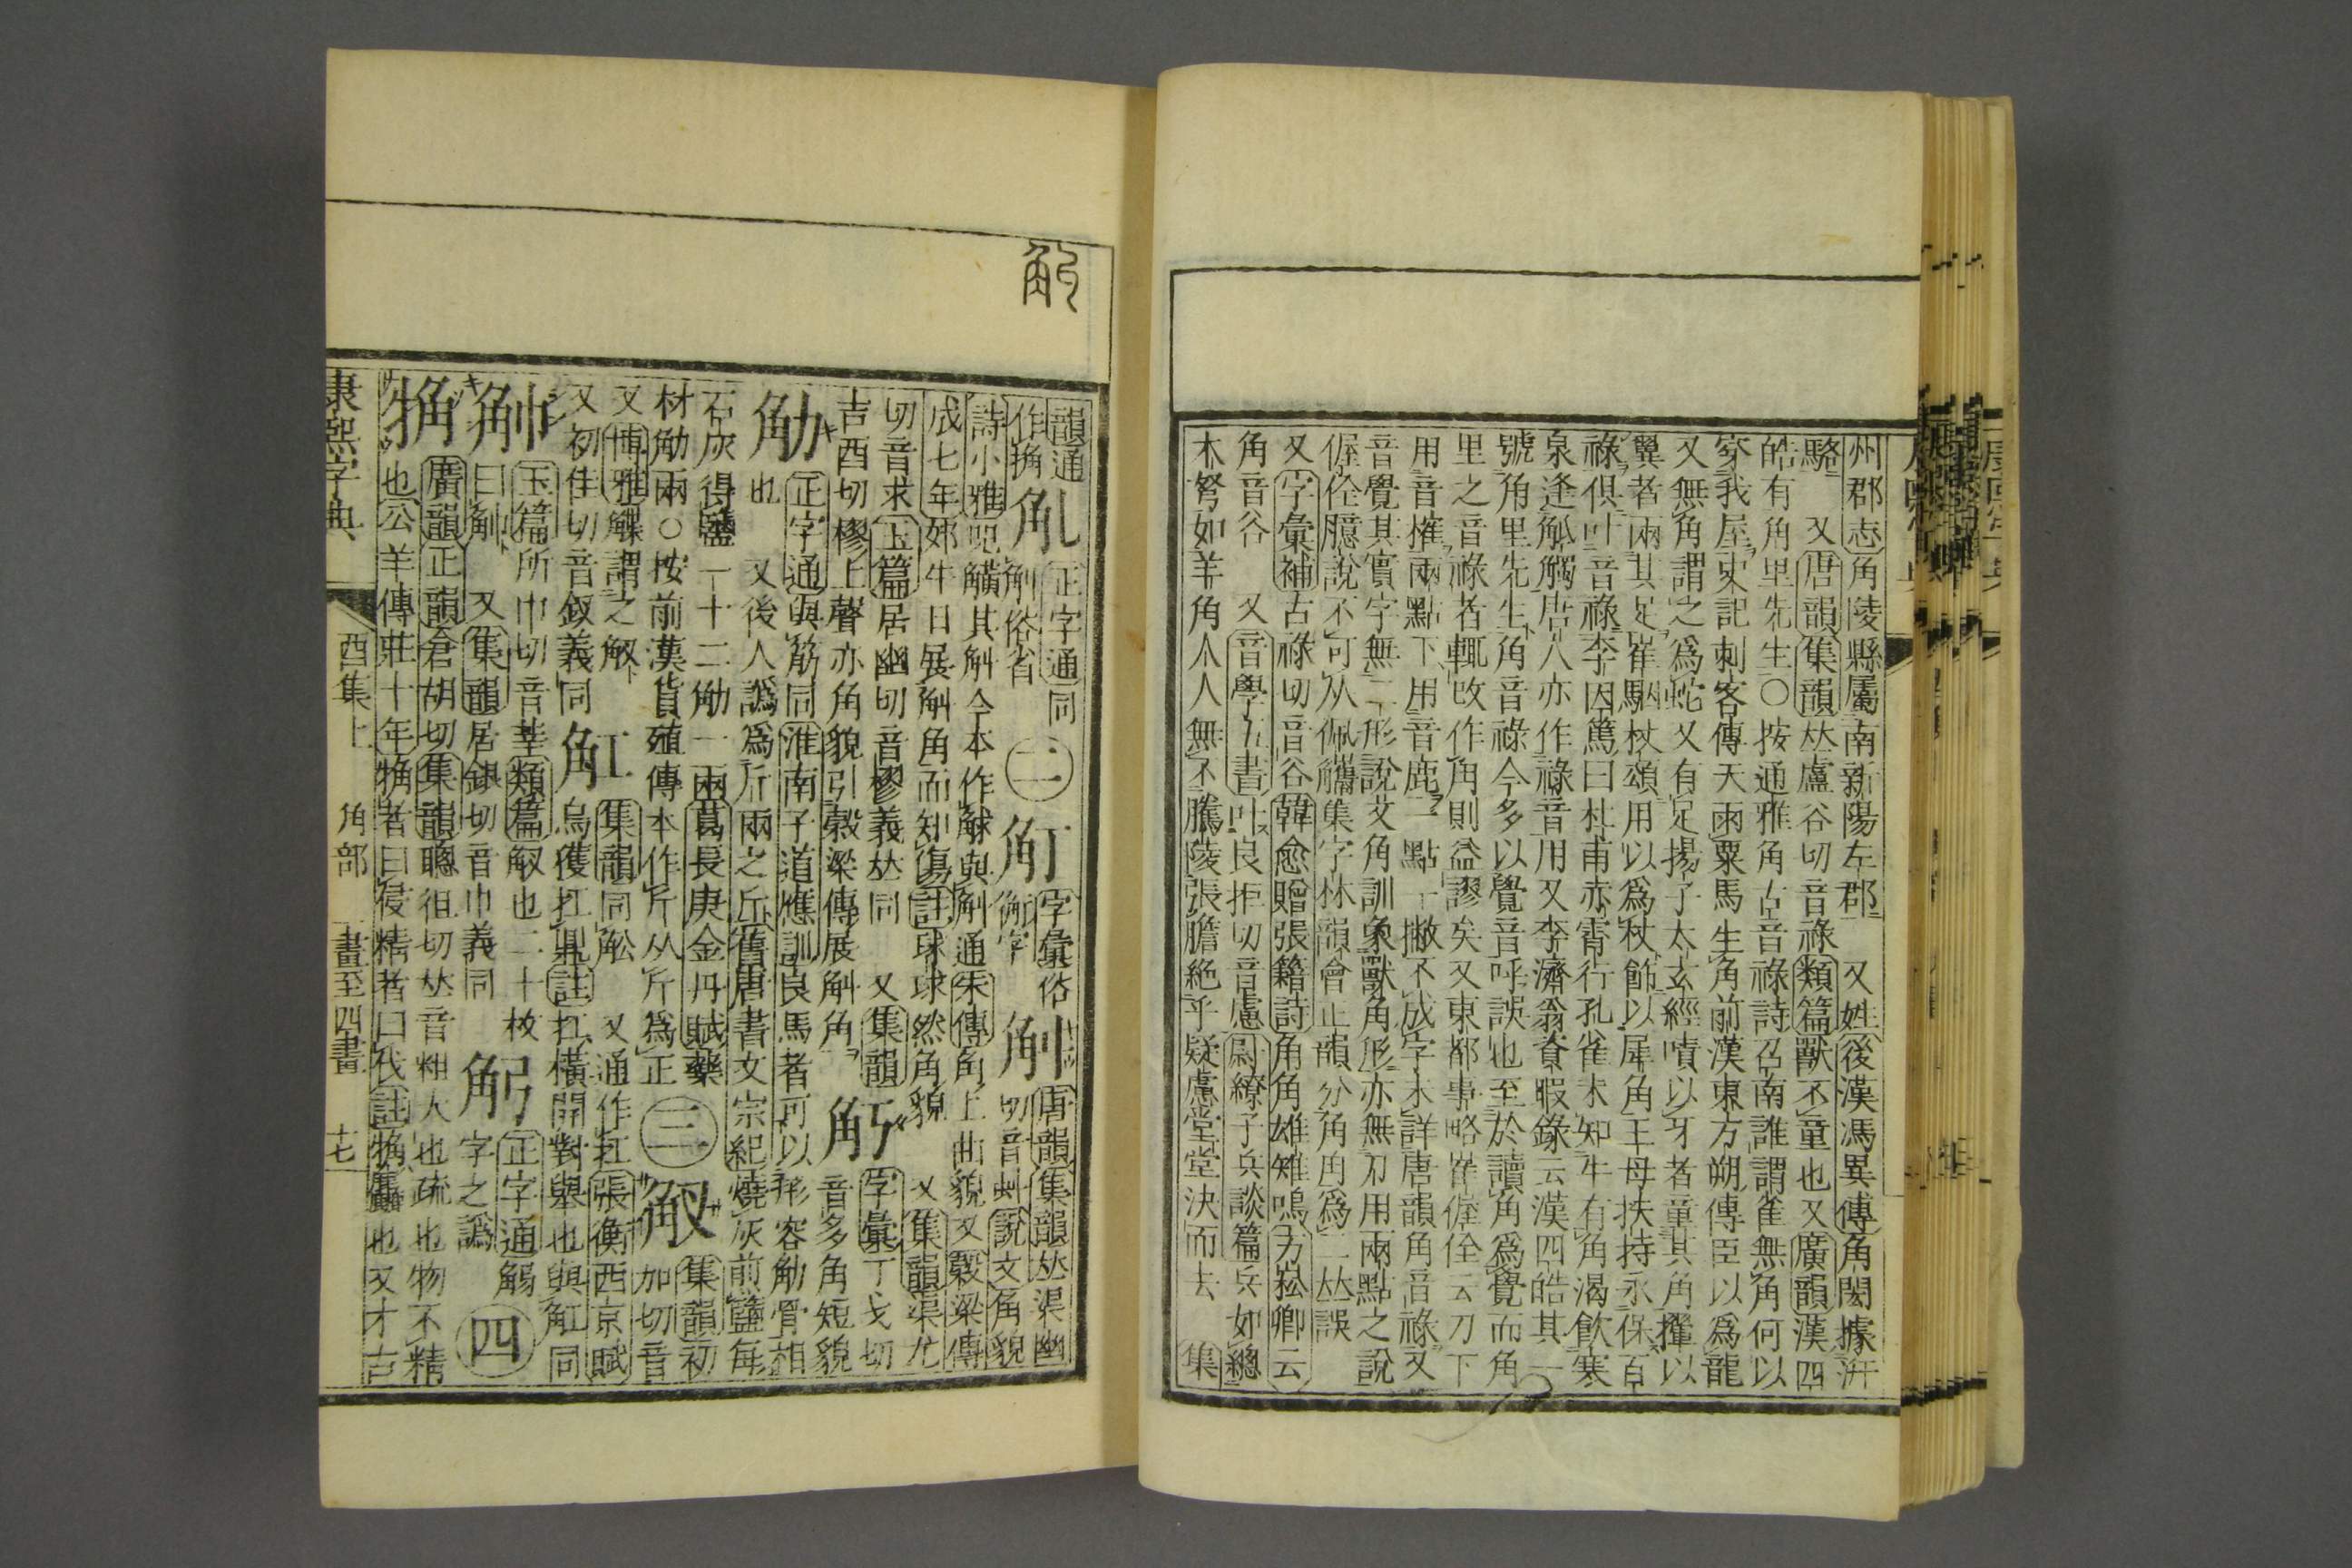 州郡志角陵縣屬南新陽左郡 又姓後漢馮異傳角閎據汧
駱 又唐韻集韻𠀤盧谷切音祿類篇獸不童也又廣韻漢四
皓有角里先生○按通雅角古音祿詩召南誰謂雀無角何以
穿我屋史記刺客傳天雨粟馬生角前漢東方朔傳臣以爲龍
又無角謂之爲蛇又有足揚子太玄經嘖以牙者童其角攆以
翼者兩其足崔駰杖頌用以爲杖飾以犀角王母扶持永保百
祿俱叶音祿李因篤曰杜甫赤霄行孔雀未知牛有角渴飲寒
泉逢觝觸唐人亦作祿音用又李濟翁資暇錄云漢四皓其一
號角里先生角音祿今多以覺音呼誤也至於讀角爲覺而角
里之音祿者輒改作甪則益謬矣又東都事略崔偓佺云刀下
用音榷兩點下用音鹿一點一撇不成字未詳唐韻角音祿又
音覺其實字無二形說文角訓象獸角形亦無刀用兩點之說
偓佺臆說不可从佩觿集字林韻會正韻分角甪爲二𠀤誤
又字彙補古祿切音谷韓愈贈張籍詩角角雄雉鳴方崧卿云
角音谷 又音學五書叶良拒切音慮尉繚子兵談篇兵如總
木弩如羊角人人無不騰陵張膽絕乎疑慮堂堂決而去 集
𧢲
韻通
作捔 觓 正字通同
觓俗省 二 觓 字彙俗
觓字 觓 唐韻集韻𠀤渠幽
切音虯說文角貌
詩小雅兕觵其觓今本作觩與觓通朱傳角上曲貌又穀梁傳
成七年郊牛日展觓角而知傷註球球然角貌 又集韻渠尤
切音求玉篇居幽切音樛義𠀤同 又集韻
吉酉切樛上聲亦角貌引穀梁傳展觓角 字彙丁戈切
音多角短貌
觔 正字通與筋同淮南子道應訓良馬者可以形容觔骨相
也 又後人譌爲斤兩之斤舊唐書文宗紀燒灰煎鹽每
石灰得鹽一十二觔一兩葛長庚金丹賦藥
材觔兩○按前漢貨殖傳本作斤斤从斤爲正 三 𧢼 集韻初
加切音
又博雅觽謂之𧢼 集韻同觓 又通作扛張衡西京賦
又初佳切音釵義同 𧢸 烏獲扛鼎註扛橫開對舉也與𧢸同
玉篇所巾切音莘類篇𧢼也二十枚
曰觓 又集韻居銀切音巾義同 正字通觸
字之譌 四
觕 廣韻正韻倉胡切集韻聰徂切𠀤音粗大也疏也物不精
也公羊傳莊十年觕者曰侵精者曰伐註觕麤也又才古
康熙字典 酉集上 角部 一畫至四畫 十七